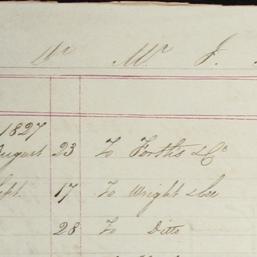 Dr Mr J.
1827
August 23 To Forths & Co
Sept. 17 To Wright & Co
28 To Ditto